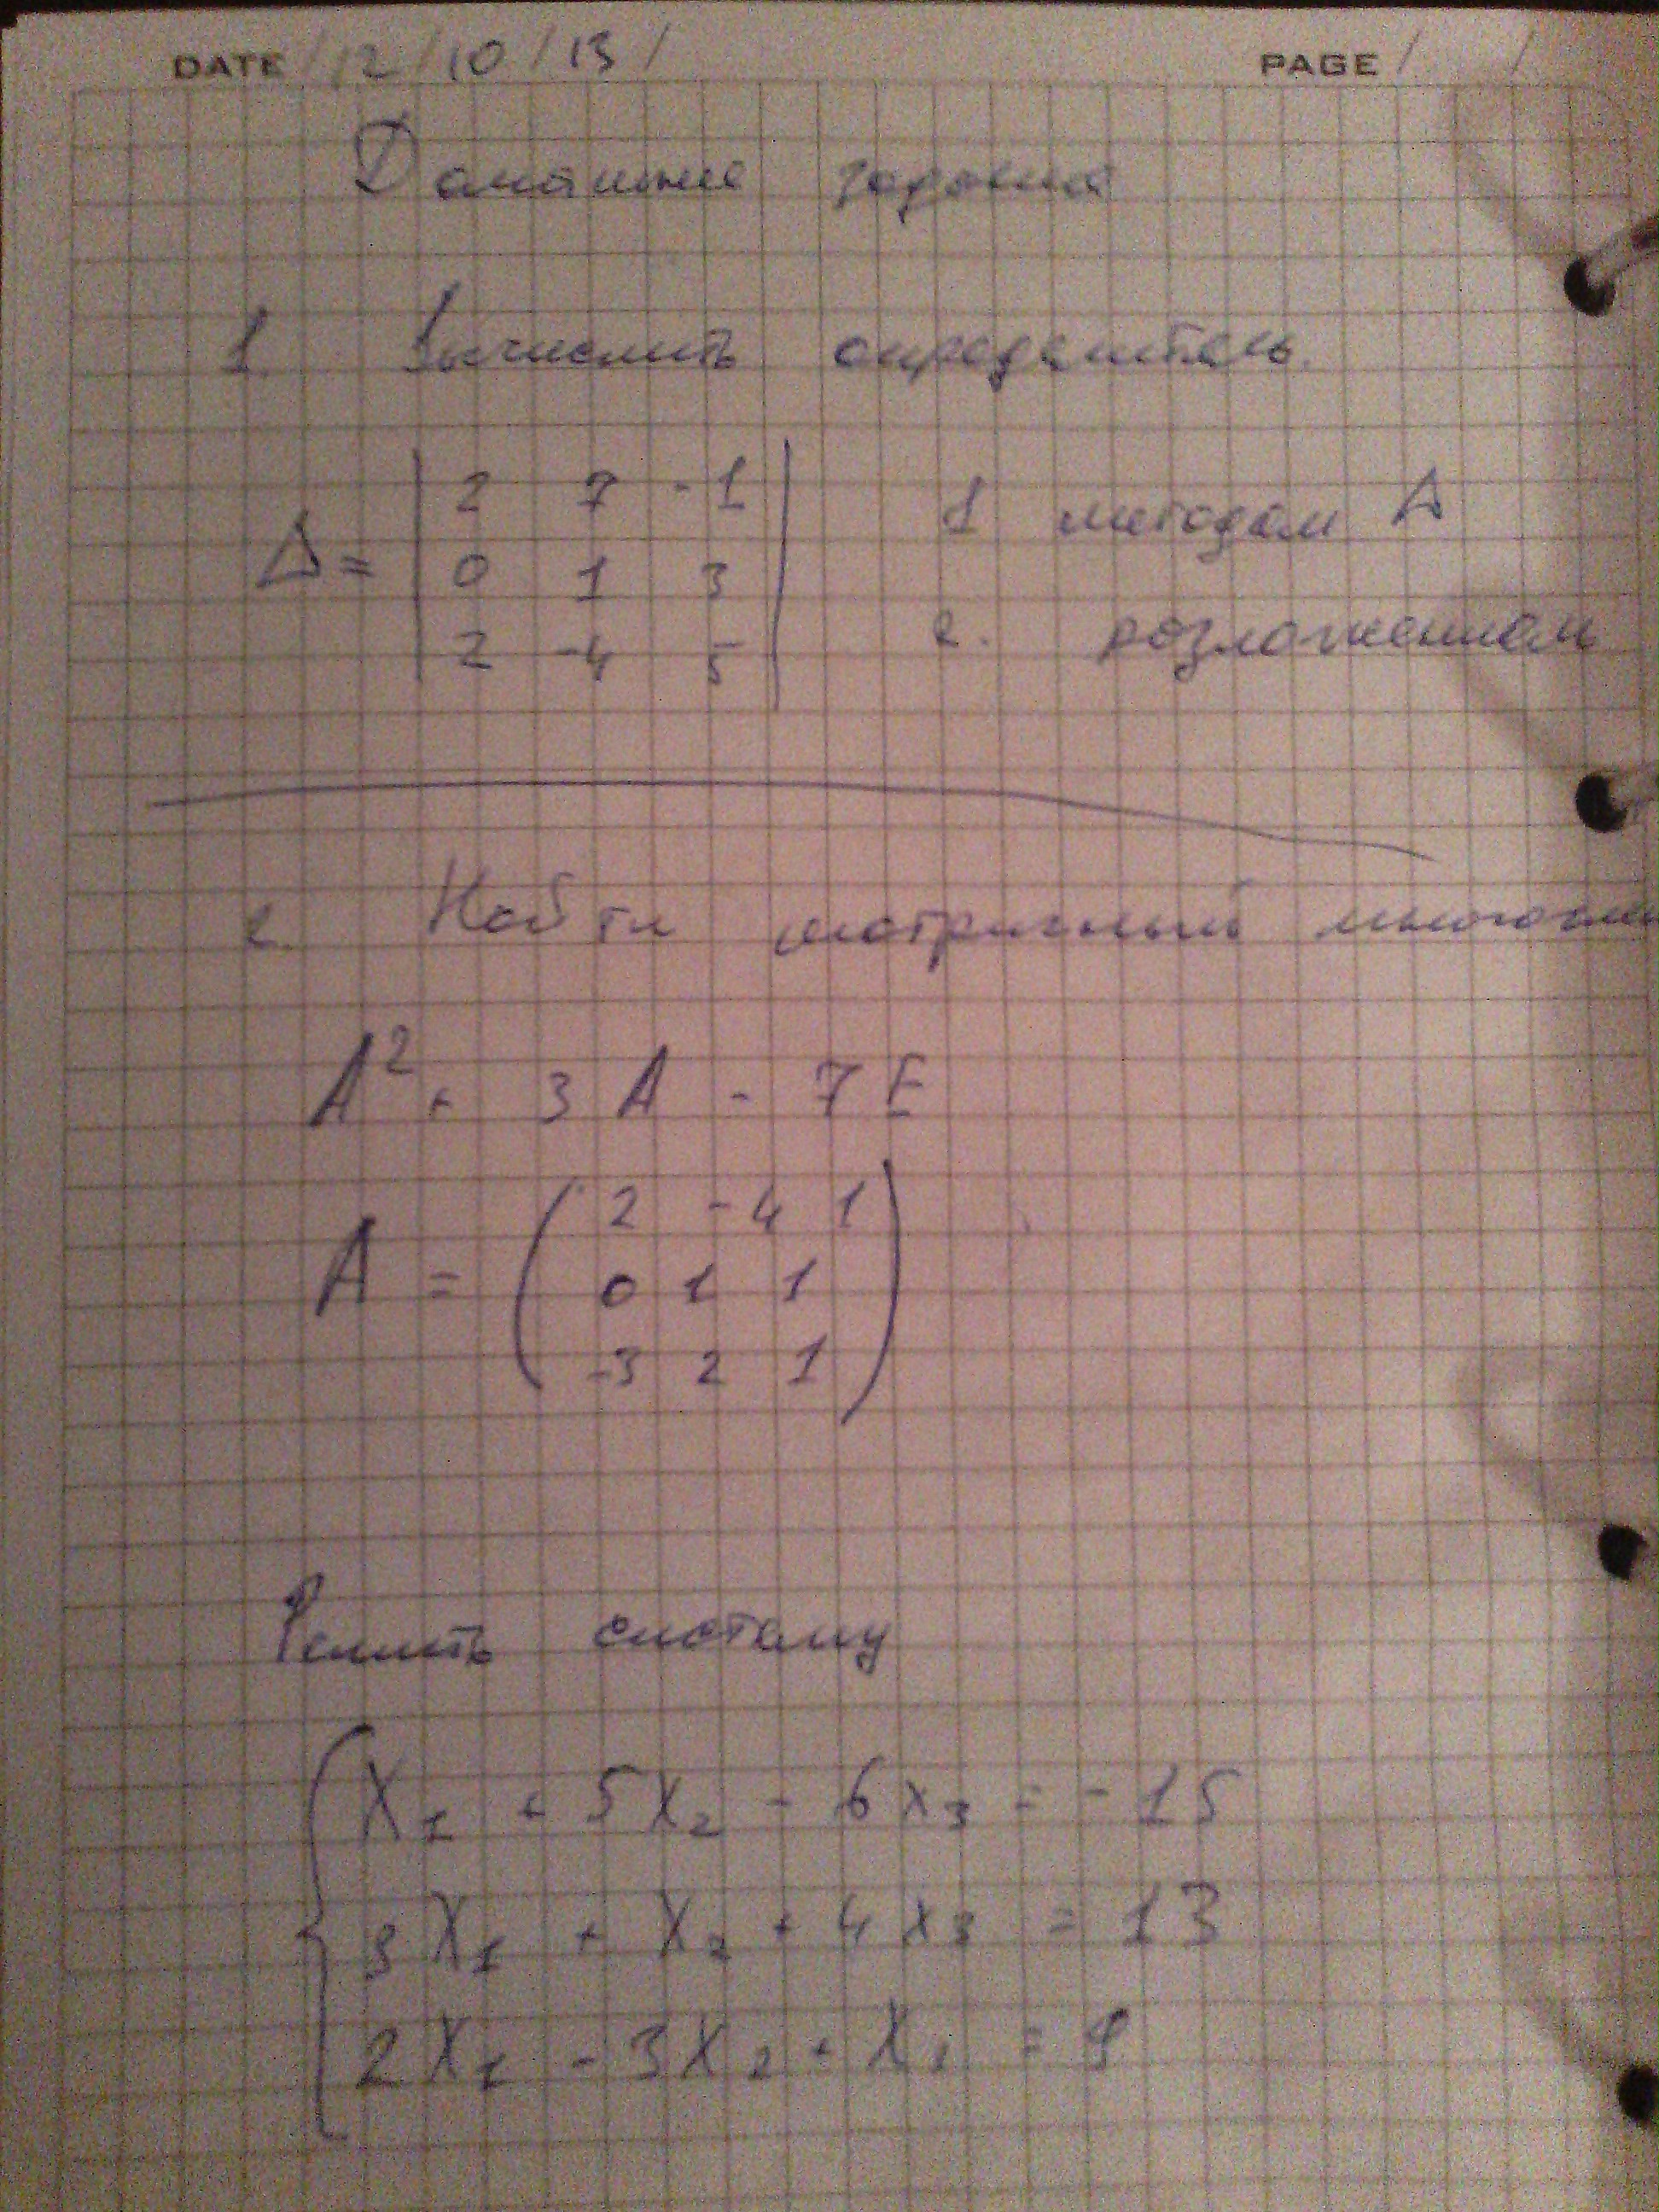 DATE /12/10/13/ PAGE / /
Домашнее задание
1. Вычислить определитель.
Δ = | 2 7 -1 | 1 методом Δ
| 0 1 3 | 2. разложением
| 2 -4 5 |
2. Найти матричный
A² + 3A - 7E
A = ( 2 -4 1
0 1 1
-3 2 1 )
Решить систему
{ X₁ + 5X₂ - 6X₃ = -15
3X₁ + X₂ + 4X₃ = 13
2X₁ - 3X₂ + X₃ = 9